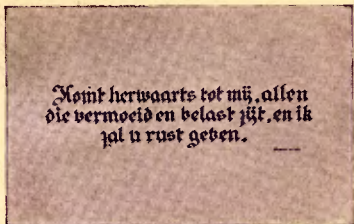 Komt herwaarts tot mij, allen
die vermoeid en belast zijt, en ik
zal u rust geven.